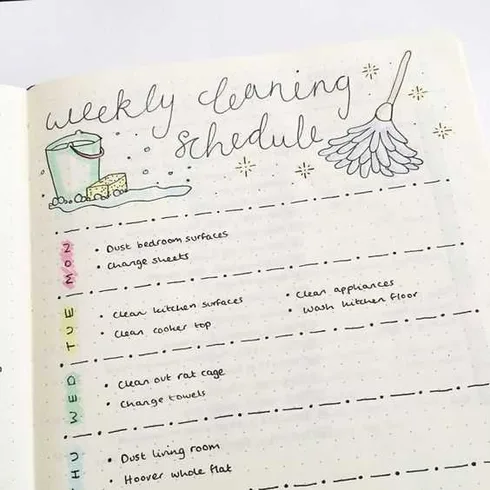 weekly cleaning
schedule
MON
• Dust bedroom surfaces
• Change sheets
TUE
• Clean kitchen surfaces
• Clean cooker top
• Clean appliances
• Wash kitchen floor
WED
• Clean out rat cage
• Change towels
THU
• Dust living room
• Hoover whole flat